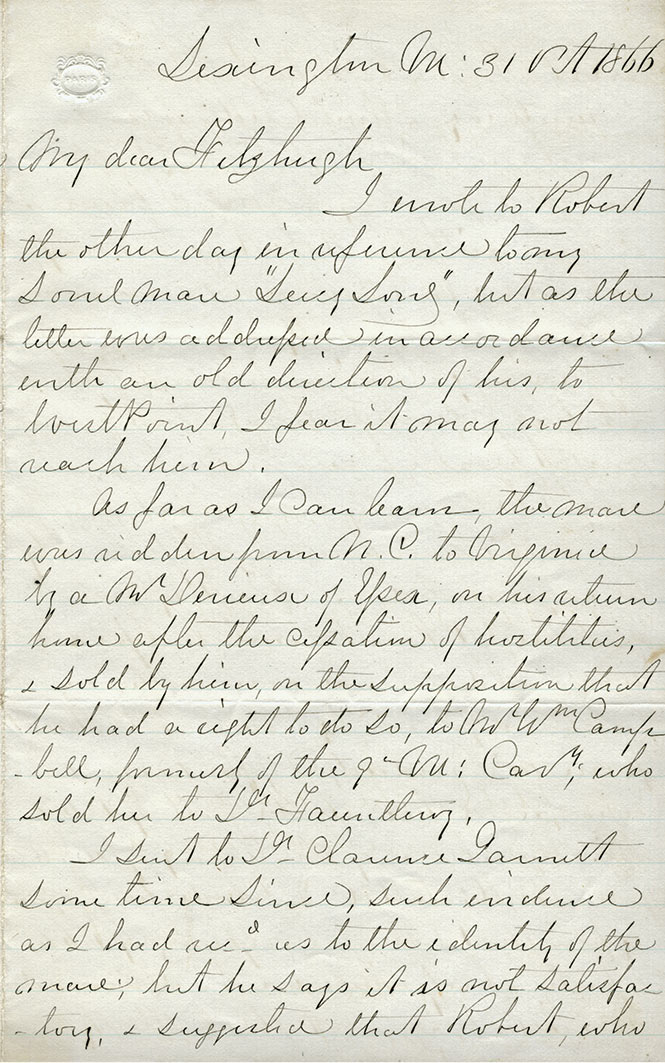 PARIS
Lexington Va: 31 Oct 1866
My dear Fitzhugh
I wrote to Robert
the other day in reference to my
sorrel mare "Lucy Long", but as the
letter was addressed in accordance
with an old direction of his, to
West Point, I fear it may not
reach him.
As far as I can learn, the mare
was ridden from N. C. to Virginia
by a Mr of Essex, on his return
home after the cessation of hostilities,
& sold by him, on the supposition that
he had a right to do so, to Mr Wm Camp
-bell, formerly of the 9th Va: Cavy, who
sold her to Dr Fauntleroy.
I sent to Dr Clarence Garnett
some time since, such evidence
as I had recd as to the identity of the
mare; but he says it is not satisfac-
-tory, & suggested that Robert, who